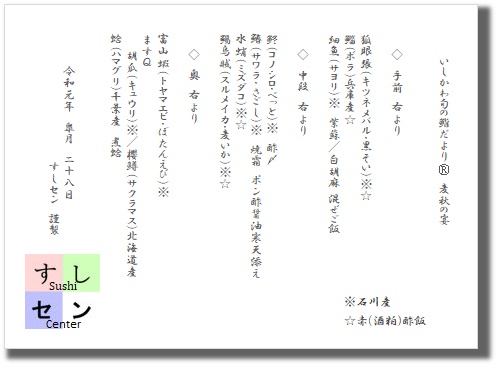 いしかわ旬の鮨だより® 麦秋の宴
◇ 手前 右より
狐眼張(キツネメバル・黒そい)※☆
鯔(ボラ)兵庫産☆
細魚(サヨリ)※ 紫蘇／白胡麻 混ぜご飯
◇ 中段 右より
鮗(コノシロ・べっと)※ 酢〆
鰆(サワラ・さごし)※ 焼霜 ポン酢醤油寒天添え
水蛸(ミズダコ)※☆
鯣烏賊(スルメイカ・麦いか)※☆
◇ 奥 右より
富山蝦(トヤマエビ・ぼたんえび)※
ますQ
胡瓜(キュウリ)※／櫻鱒(サクラマス)北海道産
蛤(ハマグリ)千葉産 煮蛤
令和元年 皐月 二十八日
すしセン 謹製
※石川産
☆赤(酒粕)酢飯
すし
Sushi
セン
Center